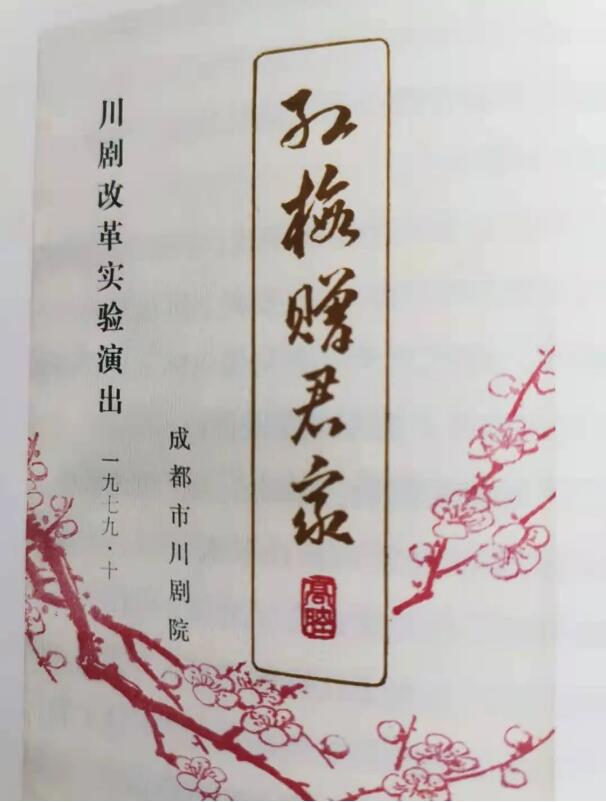 红梅赠君家
高腔
成都市川剧院
川剧改革实验演出
一九七九·十